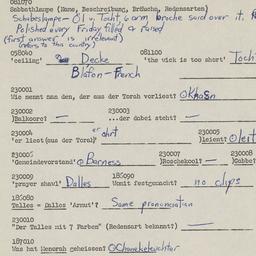 081070
Sabbathlampe (Name, Beschreibung, Bräuche, Redensarten)
Schabeslampe - Öl u. Tocht, warm broche said over it.
Polished every Friday, filled & raised
(first answer is irrelevant)
(refers to this country)
058060 081100
'ceiling' Decke 'the wick is too short' Toch
Blafon - French
230001
Wie nennt man den, der aus der Torah vorliest? Khasn
230002 230003
(Balkoore)? — ...der darot steht? —
230004 230005
'er liest (aus der Torah)' er ohrt (leient?) leit
230006 230007 230008
'Gemeindevorstand' Barness (Roschekool)? — (Gabbe)
230009 185090
'prayer shawl' Dalles Womit festgemacht? no clips
185080
Talles = Dalles 'Armut'? Same pronunciation
230010
"Der Talles mit 7 Farben" (Redensart bekannt?) —
187010
Was hat Menorah geheissen? Chanekeleuchter